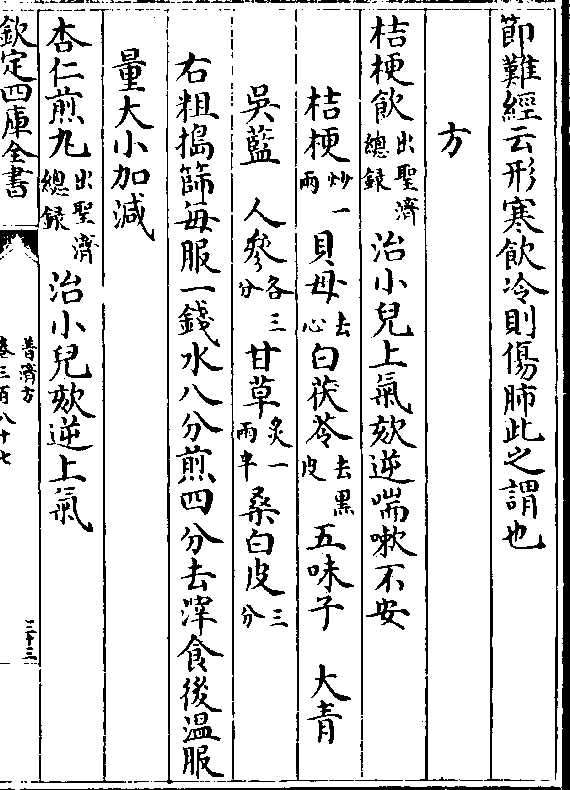 節難經云形寒飲冷則傷肺此之謂也
方
桔梗飲出聖濟總錄治小兒上氣欬逆喘嗽不安
桔梗炒一兩貝母去心白茯苓去黑皮五味子 大青
吳藍 人參各三分甘草炙一兩半桑白皮三分
右粗搗篩每服一錢水八分煎四分去滓食後溫服
量大小加減
杏仁煎丸出聖濟總錄治小兒欬逆上氣
欽定四庫全書
普濟方
卷三百八十七
三十三